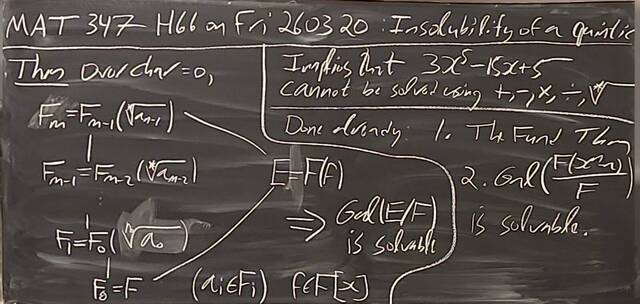 MAT 347 H66 on Fri 260320: Insolubility of a quintic
Thm Over char=0,
Fₘ=Fₘ₋₁(ⁿ√aₘ₋₁)
Fₘ₋₁=Fₘ₋₂(ⁿ√aₘ₋₂)
F₁=F₀(ⁿ√a₀)
F₀=F
E=F(f)
⇒ Gal(E/F)
is solvable
(aᵢ∈Fᵢ) f∈F[x]
Implies that 3x⁵-15x+5
cannot be solved using +,-,×,÷,ⁿ√
Done already: 1. The Fund Thm
2. Gal(F(xⁿ-a)/F)
is solvable.